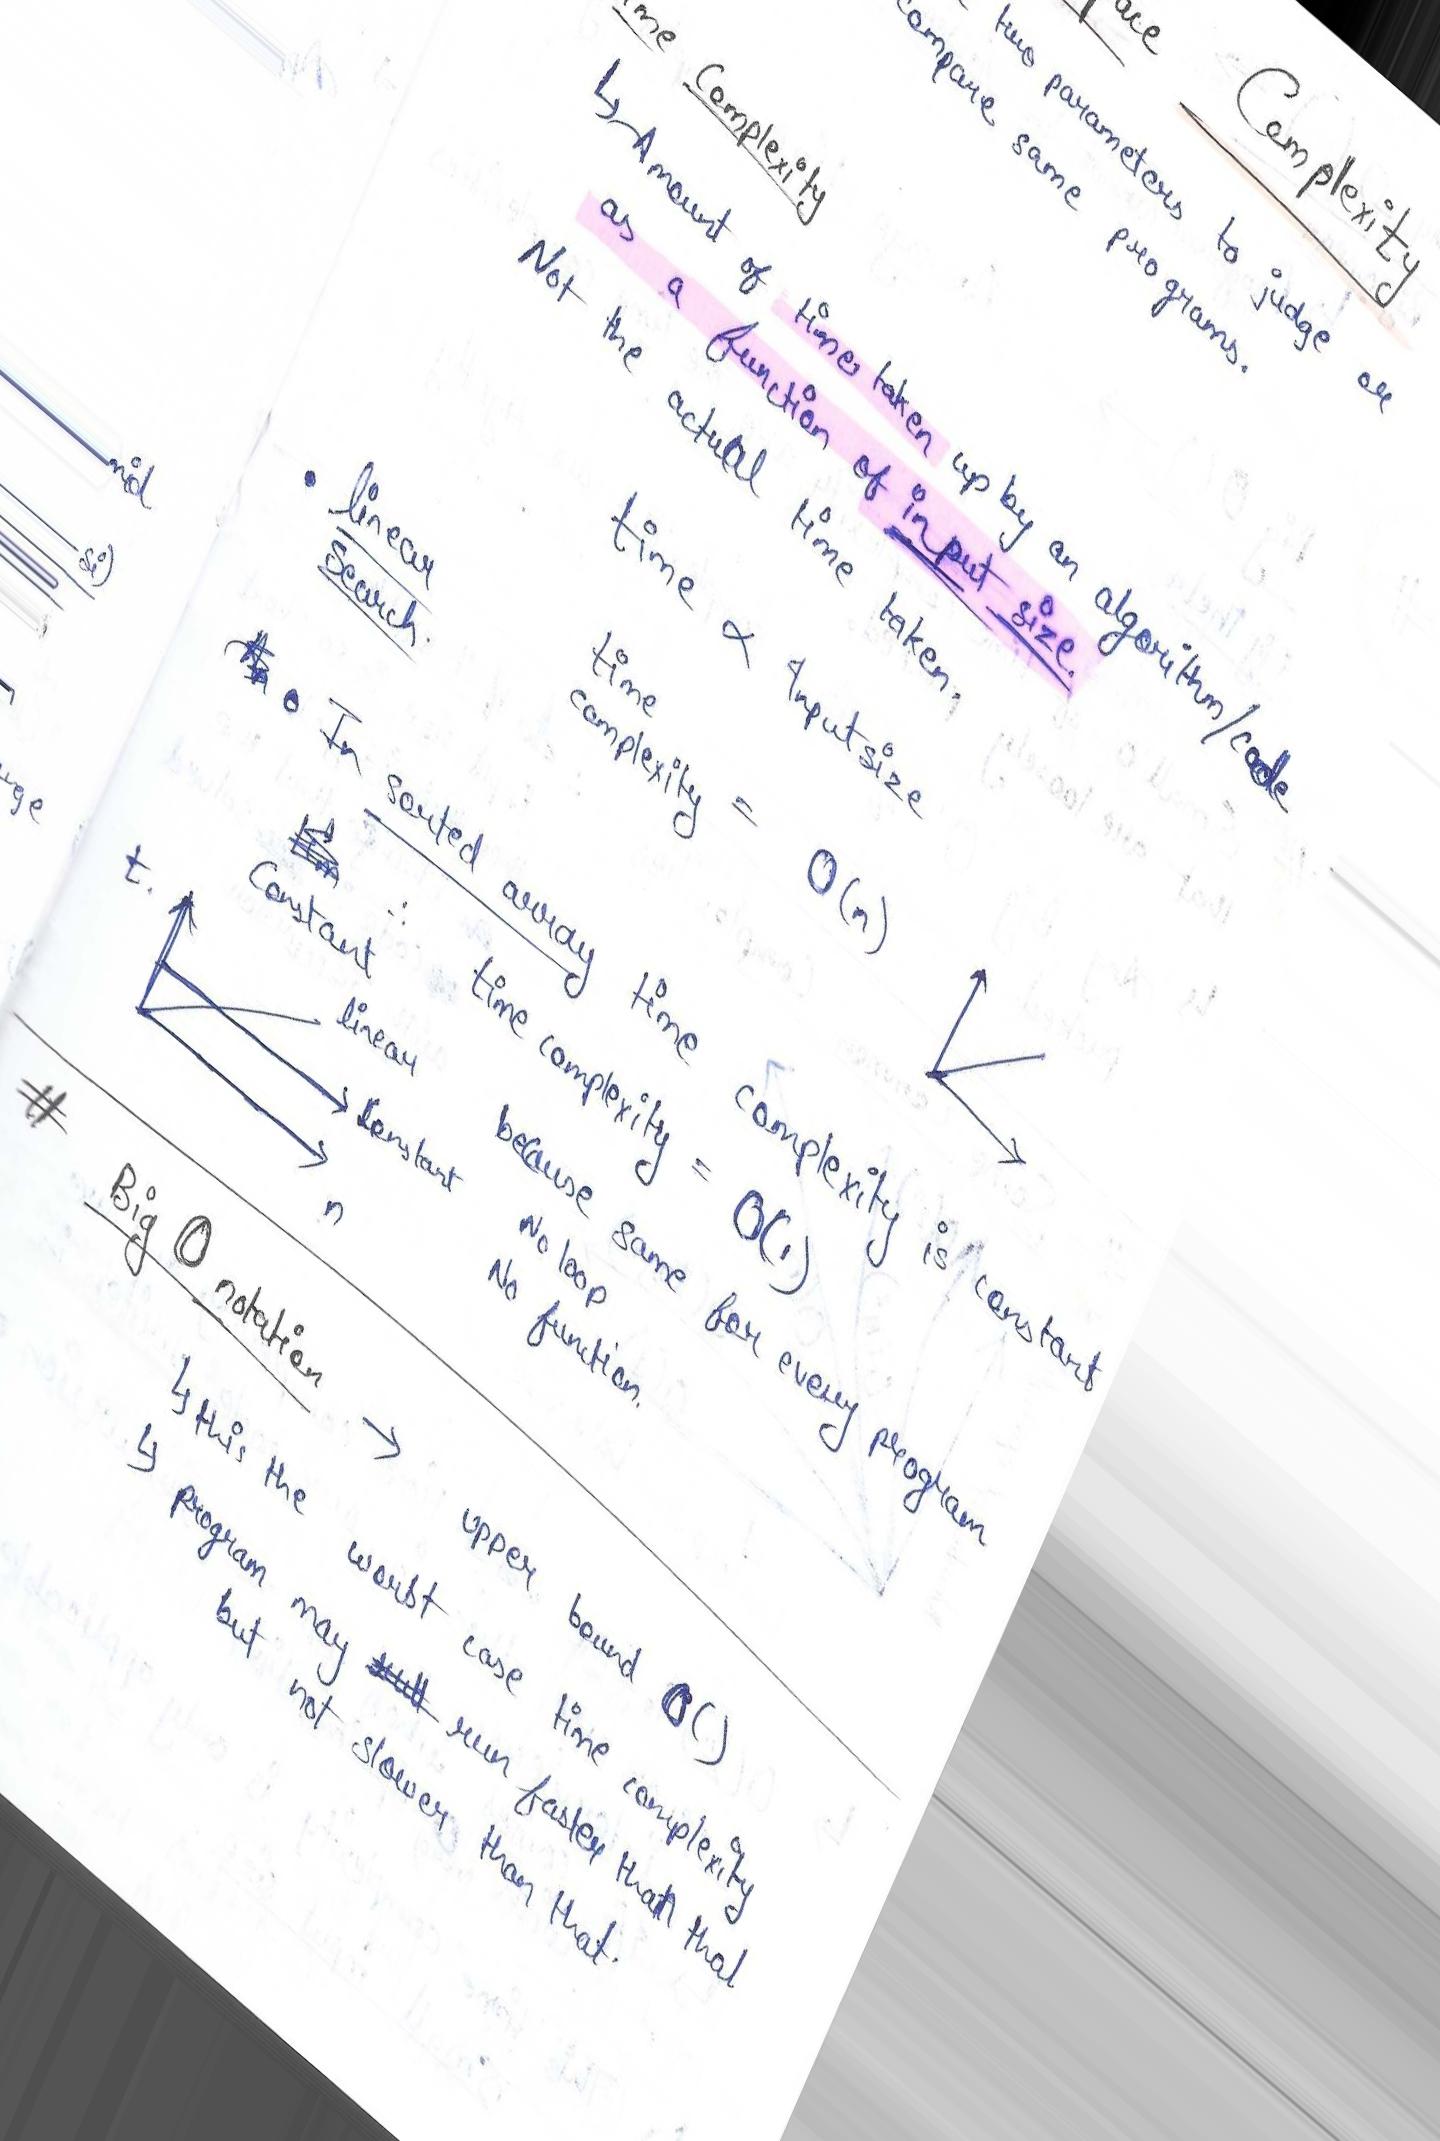 Complexity
two parameters to judge or
compare same programs.
Complexity
↳ Amount of time taken up by an algorithm/code
as a function of input size.
Not the actual time taken.
time ∝ Inputsize
• linear
Search.
time
complexity = O(n)
• In sorted array time complexity is constant
∴ time complexity = O(1)
because same for every program
No loop
No function.
Constant
t.
linear
Constant
n
# Big O notation → upper bound O()
↳ this the worst case time complexity
↳ program may run faster than that
but not slower than that.
mid
si)